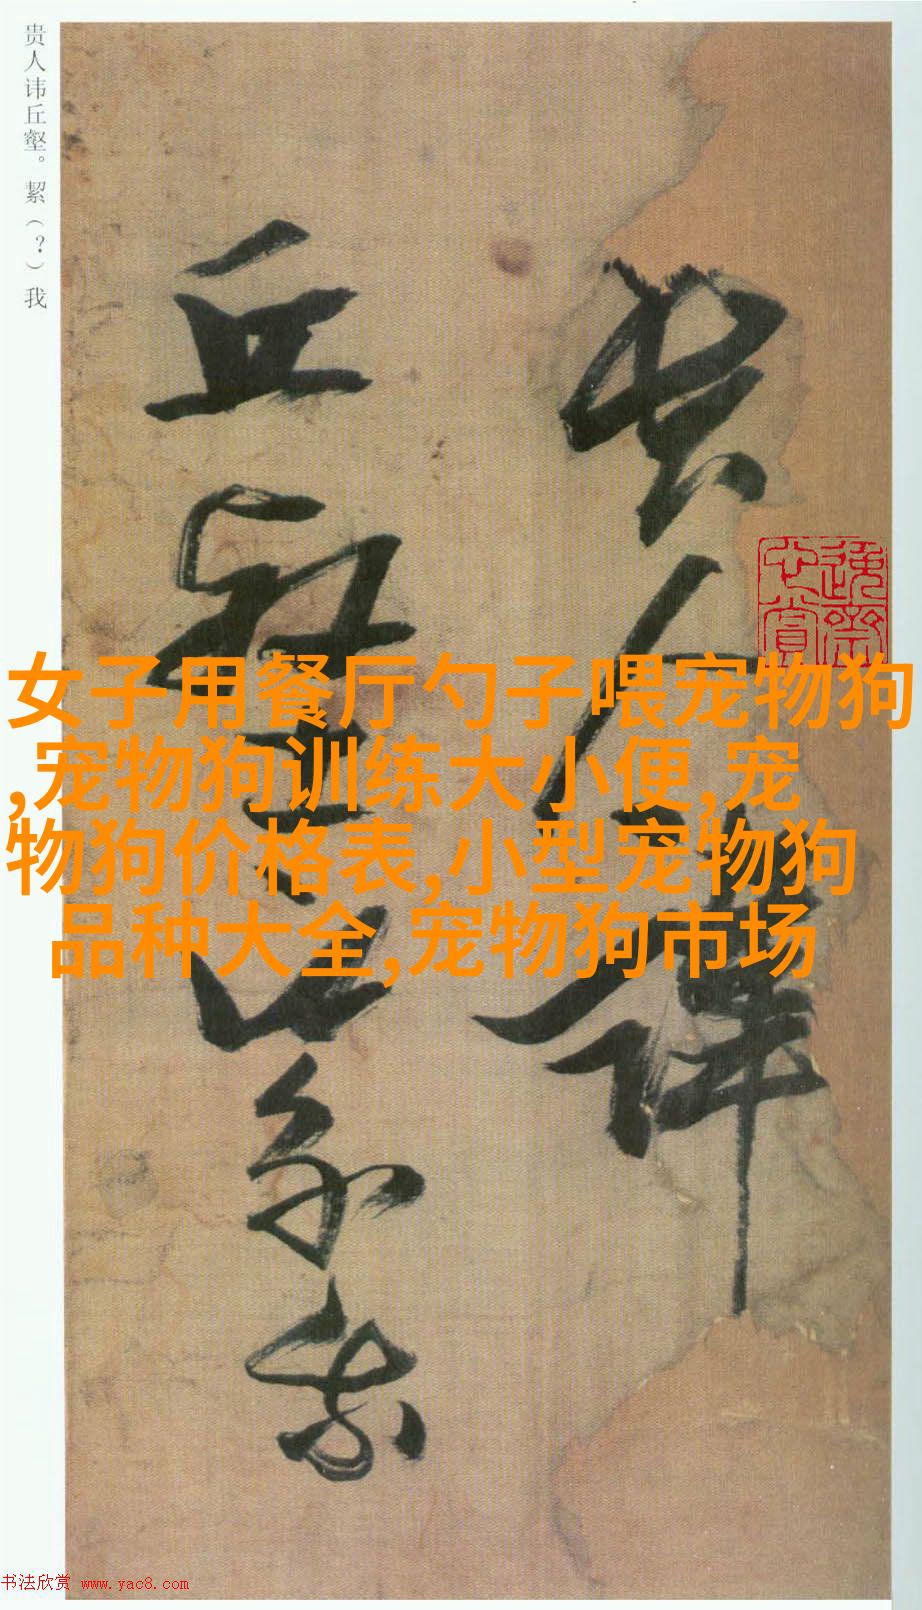 贵人讳丘壑。絜（？）我
贵人讳
丘壑
絜我
女子用餐厅勺子喂宠物狗
,宠物狗训练大小便,宠
物狗价格表,小型宠物狗
品种大全,宠物狗市场
书法欣赏 www.yac8.com